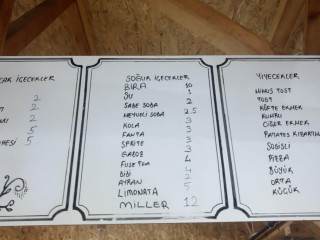 İÇECEKLER
2
2
2
5
5
SOĞUK İÇECEKLER
BİRA 10
SU 1
SADE SODA 2
MEYVELİ SODA 2.5
KOLA 3
FANTA 3
SPRITE 3
GAZOZ 3
FUSE TEA 4
DİDİ 4
AYRAN 2
LİMONATA 5
MILLER 12
YİYECEKLER
TOST
KÖFTE EKMEK
KUMRU
CİĞER EKMEK
PATATES KIZARTMA
SOSİSLİ
PİZZA
BÜYÜK
ORTA
KÜÇÜK